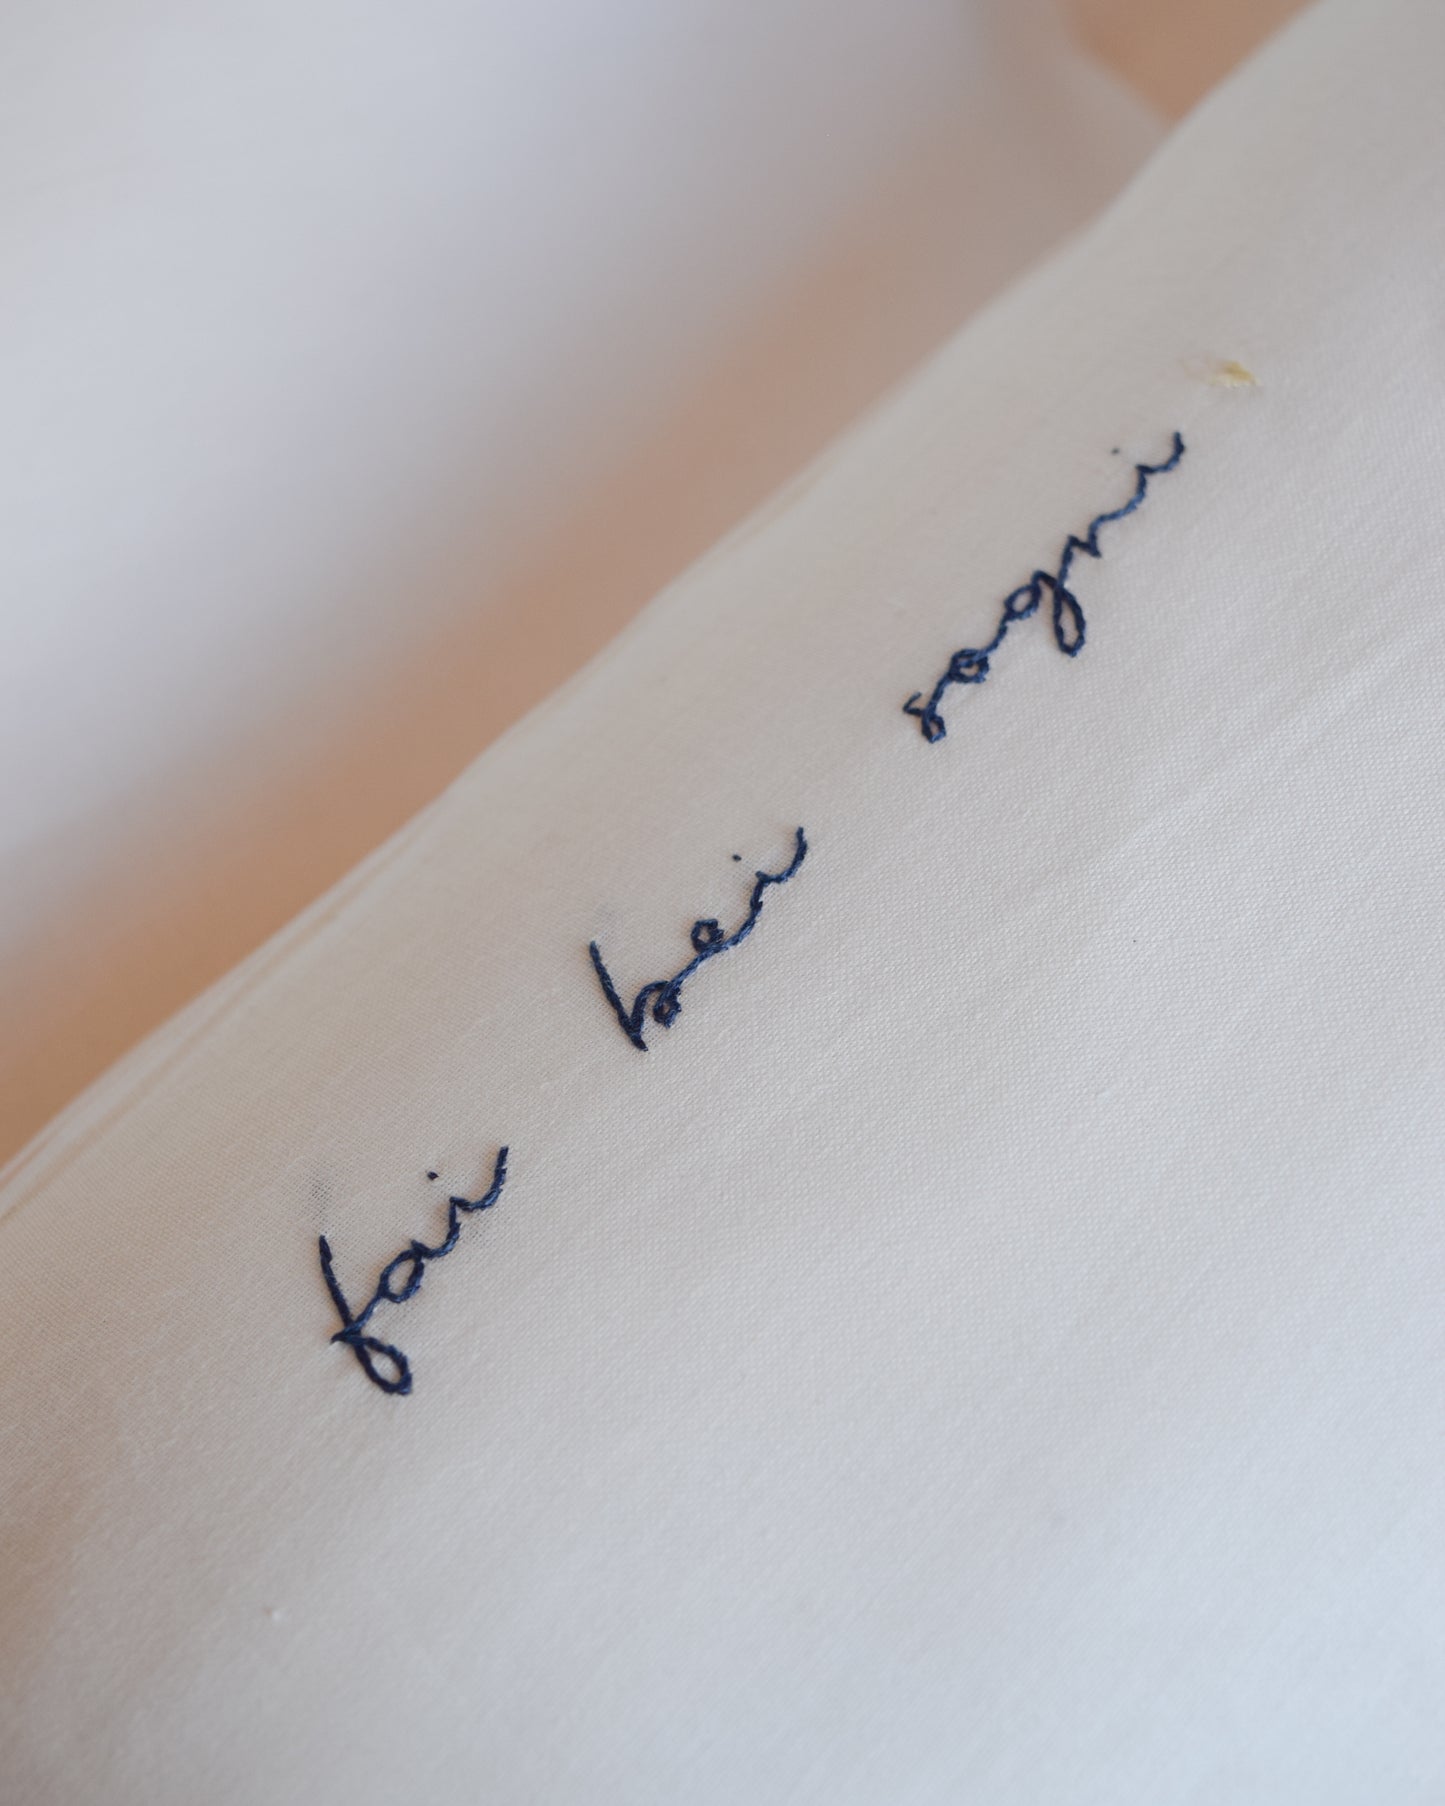 fai bei sogni